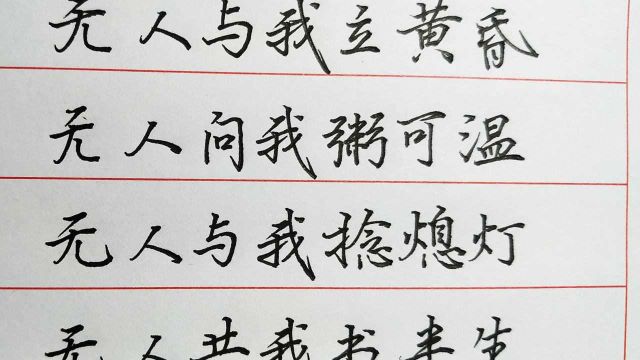 无人与我立黄昏
无人问我粥可温
无人与我捻熄灯
无人共我书半生